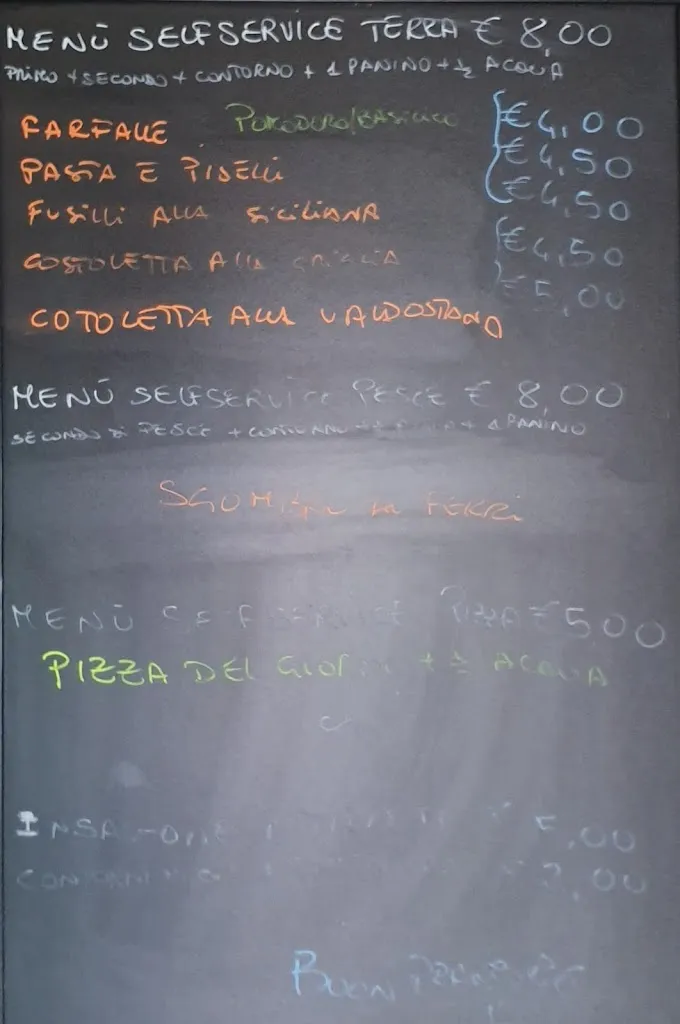 MENÙ SELFSERVICE TERRA € 8,00
PRIMO + SECONDO + CONTORNO + 1 PANINO + ½ ACQUA
FARFALLE POMODORO/BASILICO € 4,00
PASTA E PISELLI € 4,50
FUSILLI ALLA SICILIANA € 4,50
COSTOLETTA ALLA GRIGLIA € 4,50
COTOLETTA ALLA VALDOSTANA € 5,00
MENÙ SELFSERVICE PESCE € 8,00
SECONDO DI PESCE + CONTORNO + 1 PANINO
AI FERRI
MENÙ SELFSERVICE PIZZA € 5,00
PIZZA DEL GIORNO + ½ ACQUA
5,00
2,00
BUON